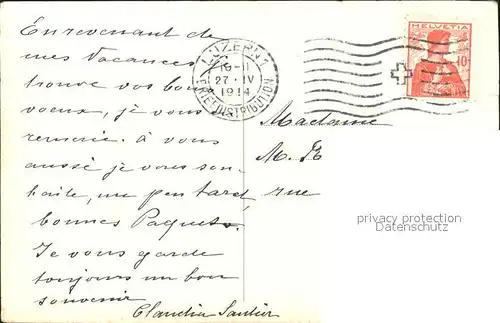 En revenant de
mes Vacances
trouve vos bons
voeux, je vous
remercie. à vous
aussi je vous sou-
haite, un peu tard,
bonnes Paques.
Je vous garde
toujours un bon
souvenir
Claudia
LUZERN 1
27·IV
1914
BRIEFDISTRIBUTION
HELVETIA
10
Madame
M. R
rue
privacy protection
Datenschutz